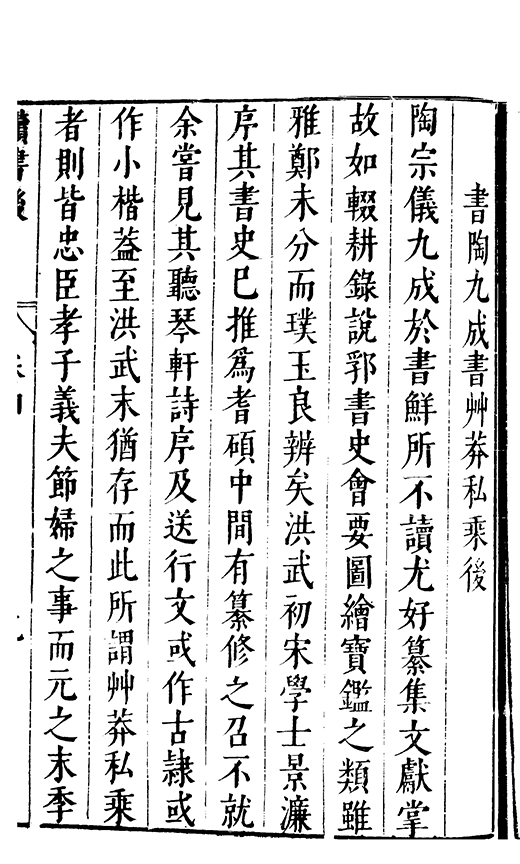 書陶九成書艸莽私乘後
陶宗儀九成於書鮮所不讀尤好纂集文獻掌
故如輟耕錄說郛書史會要圖繪寶鑑之類雖
雅鄭未分而璞玉良辨矣洪武初宋學士景濂
序其書史巳推爲耆碩中間有纂修之召不就
余嘗見其聽琴軒詩序及送行文或作古隷或
作小楷葢至洪武末猶存而此所謂艸莽私乘
者則皆忠臣孝子義夫節婦之事而元之末季
讀書後